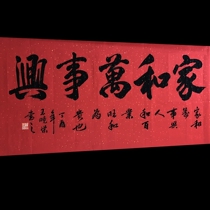 家和萬事興
家和
萬
事興
人
和百
業
旺和
為
貴也
丁酉